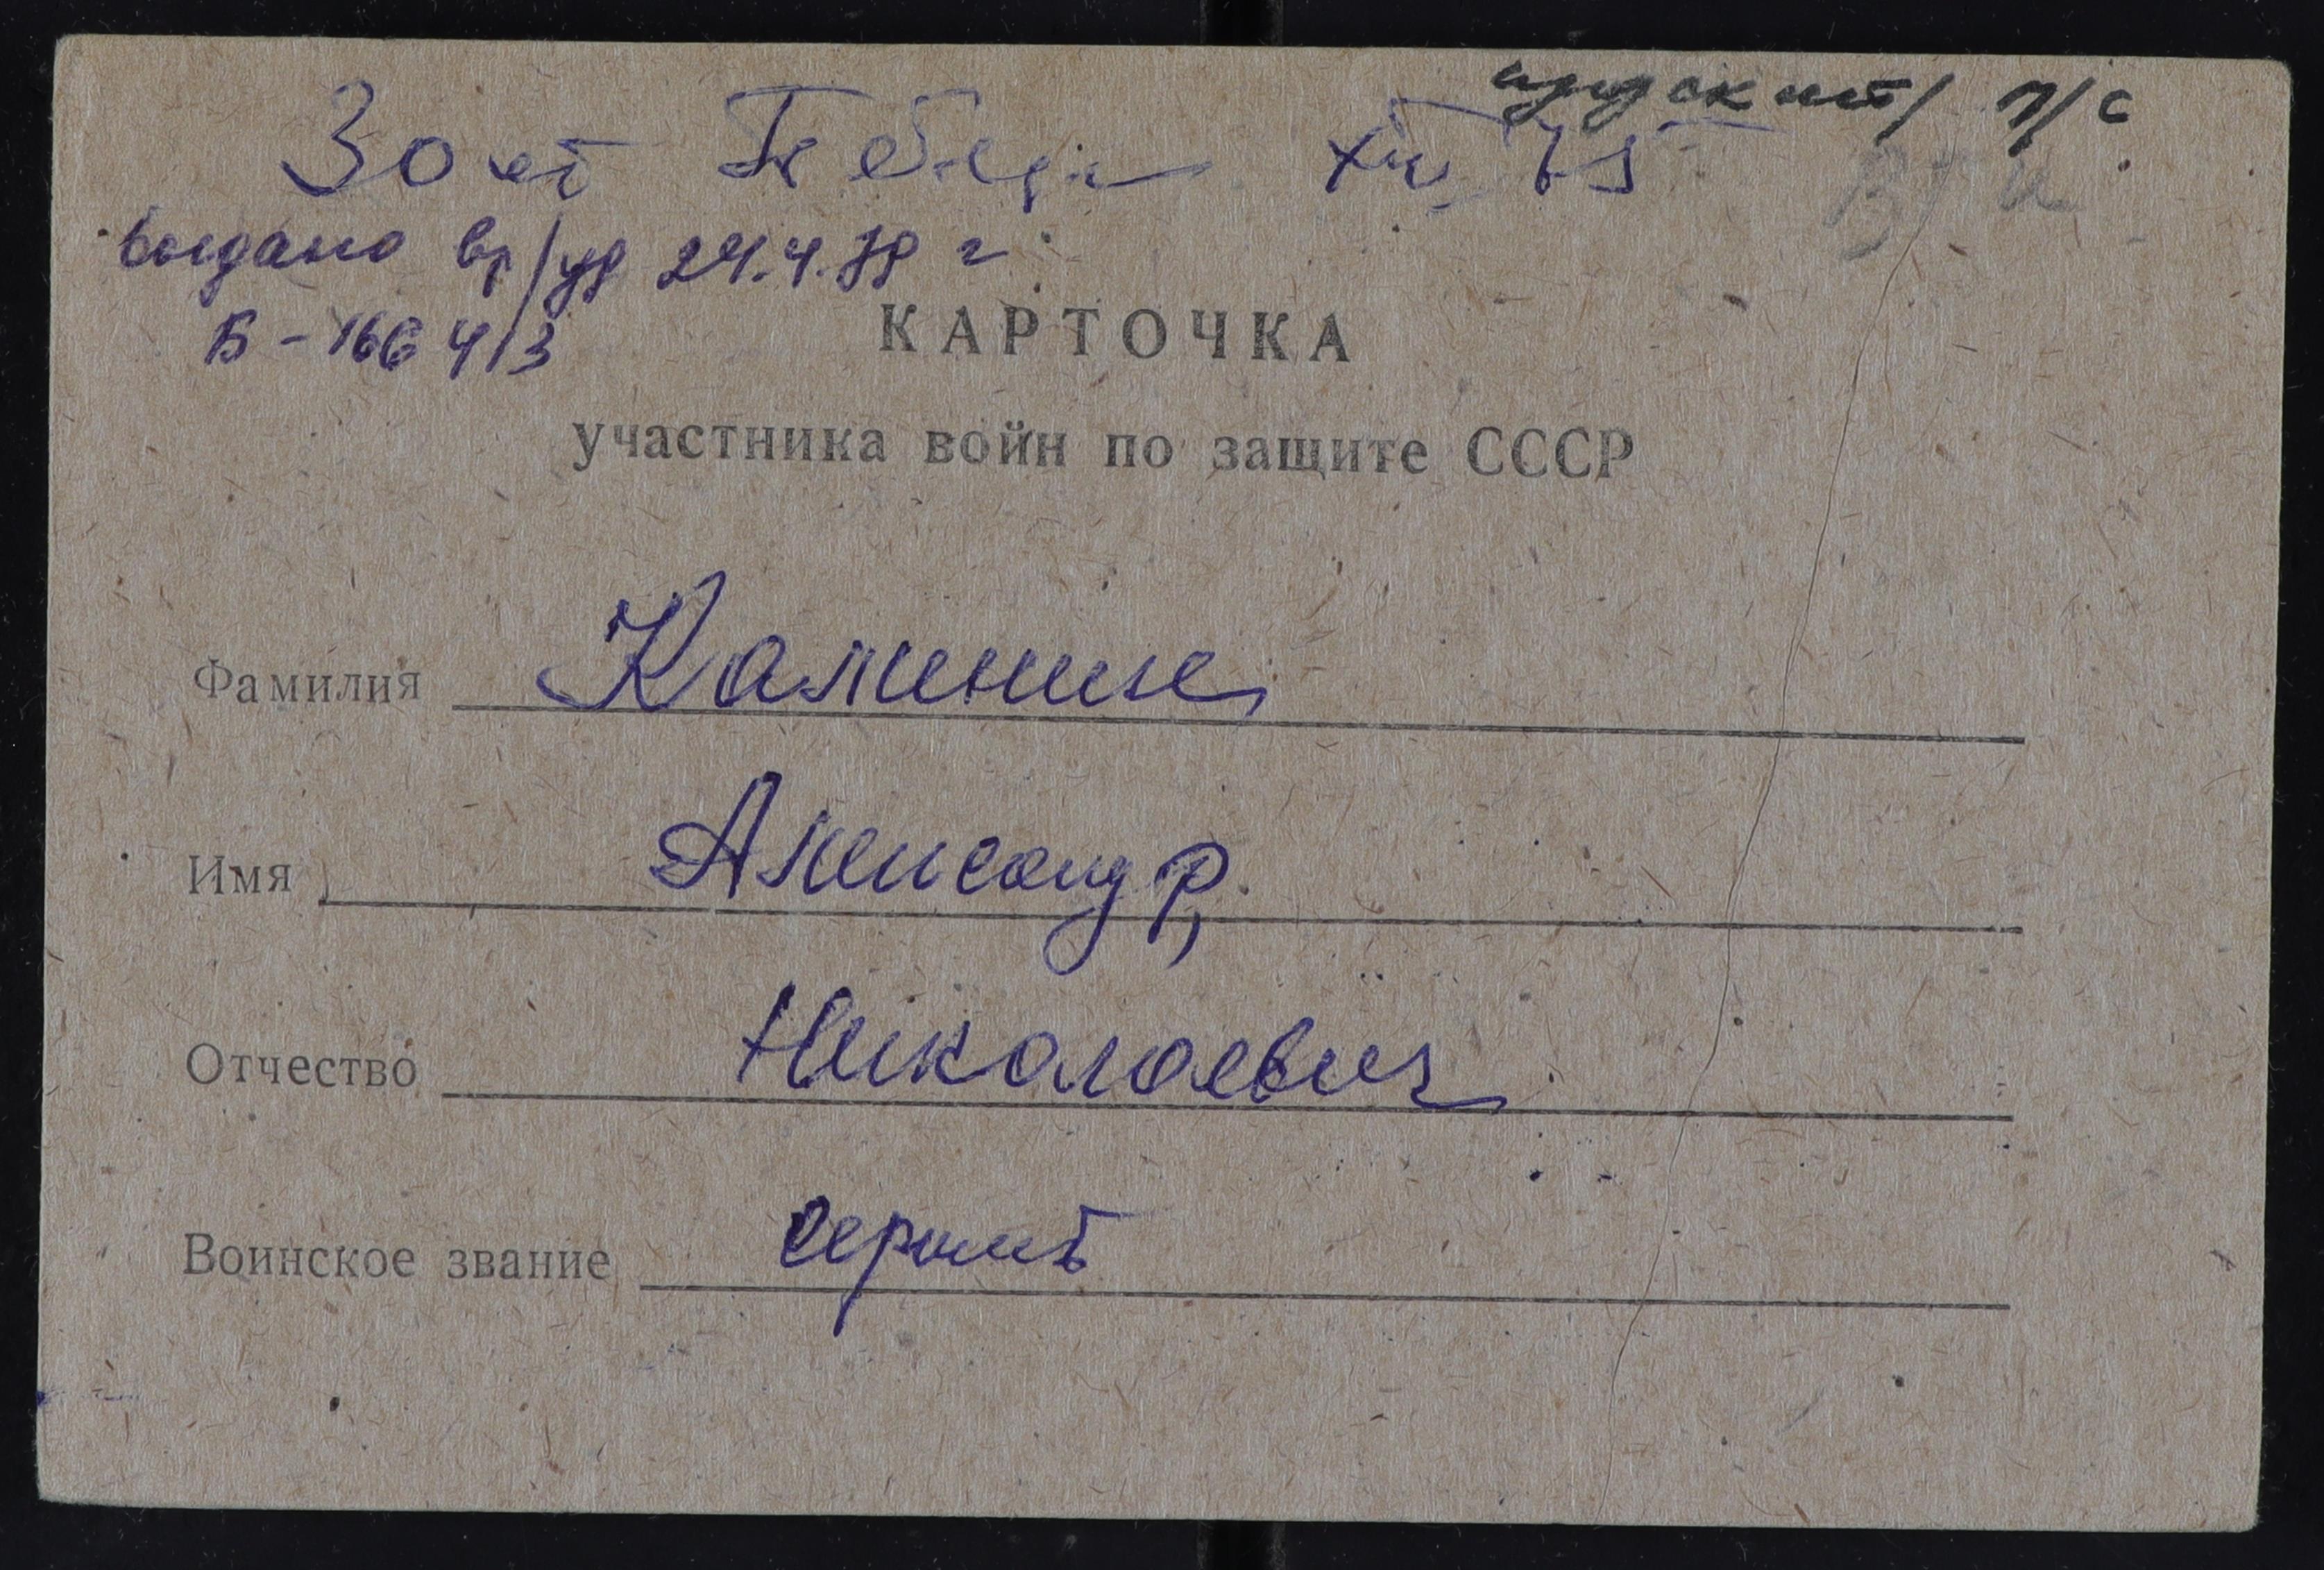 30 лет Победы
выдано вр/уд 24.4.79 г
Б-166413
КАРТОЧКА
участника войн по защите СССР
Фамилия Калинин
Имя Александр
Отчество Николаевич
Воинское звание сержант